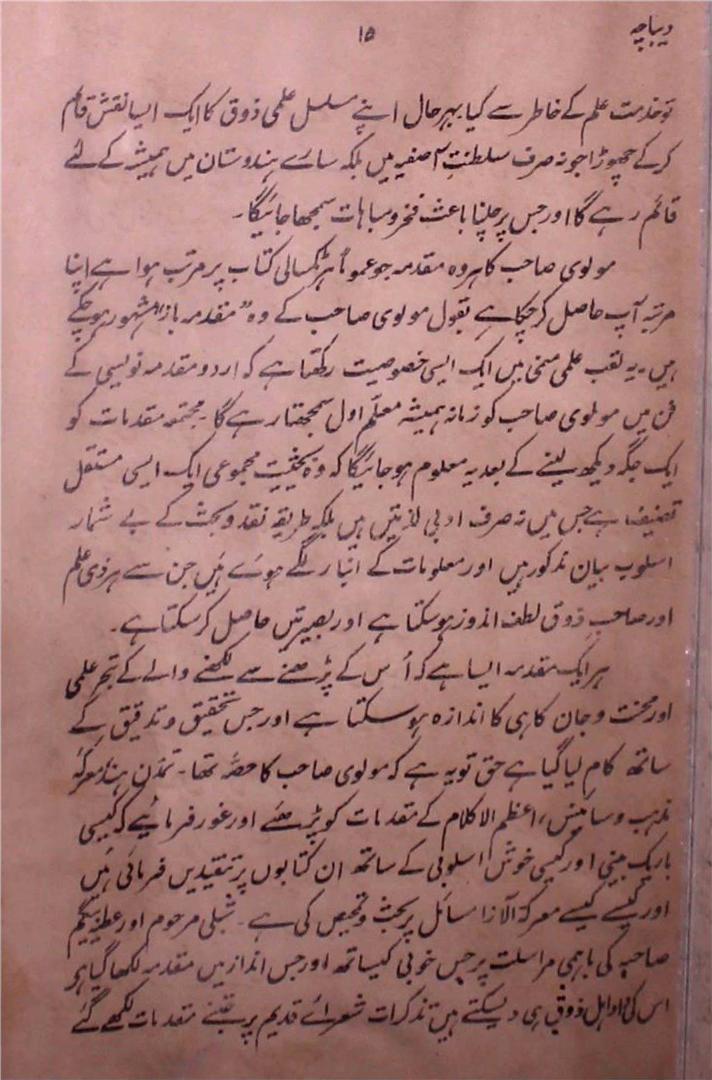 دیباچہ
۱۵
توخدمت علم کے خاطر سے کیا بہرحال اپنے مسلسل علمی ذوق کا ایک ایسا نقش قائم
کرکے چھوڑا جو نہ صرف سلطنتِ آصفیہ میں بلکہ سارے ہندوستان میں ہمیشہ کے لئے
قائم رہے گا اور جس پر چلنا باعث فخر و مباہات سمجھا جائیگا۔
مولوی صاحب کا ہر وہ مقدمہ جو عموماً ہر ٹکسالی کتاب پر مرتب ہوا ہے اپنا
مرتبہ آپ حاصل کرچکا ہے بقول مولوی صاحب کے وہ "مقدمہ باز" مشہور ہوچکے
ہیں۔ یہ لقب علمی معنی میں ایک ایسی خصوصیت رکھتا ہے کہ اردو مقدمہ نویسی کے
فن میں مولوی صاحب کو زمانہ ہمیشہ معلّم اول سمجھتا رہے گا۔ مجتمعہ مقدمات کو
ایک جگہ دیکھ لینے کے بعد یہ معلوم ہوجائیگا کہ وہ بحیثیت مجموعی ایک ایسی مستقل
تصنیف ہے جس میں نہ صرف ادبی لذتیں ہیں بلکہ طریقہ نقد و بحث کے بے شمار
اسلوب بیان مذکور ہیں اور معلومات کے انبار لگے ہوئے ہیں جن سے ہر ذی علم
اور صاحبِ ذوق لطف اندوز ہوسکتا ہے اور بصیرتیں حاصل کرسکتا ہے۔
ہر ایک مقدمہ ایسا ہے کہ اُس کے پڑھنے سے لکھنے والے کے تبحر علمی
اور محنت و جان کاہی کا اندازہ ہوسکتا ہے اور جس تحقیق و تدقیق کے
ساتھ کام لیا گیا ہے حق تو یہ ہے کہ مولوی صاحب کا حصّہ تھا۔ تمدّن ہند معرکۂ
مذہب و سائنس، اعظم الاکلام کے مقدمات کو پڑھئے اور غور فرمائیے کہ کیسی
باریک بینی اور کیسی خوش اسلوبی کے ساتھ ان کتابوں پر تنقیدیں فرمائی ہیں
اور کیسے کیسے معرکۃ الآرا مسائل پر بحث و تمحیص کی ہے۔ شبلی مرحوم اور عطیہ بیگم
صاحبہ کی باہمی مراسلت پر جس خوبی کیساتھ اور جس انداز میں مقدمہ لکھا گیا ہو
اس کی داد اہل ذوق ہی دیسکتے ہیں تذکرات شعرائے قدیم پر جتنے مقدمات لکھے گئے